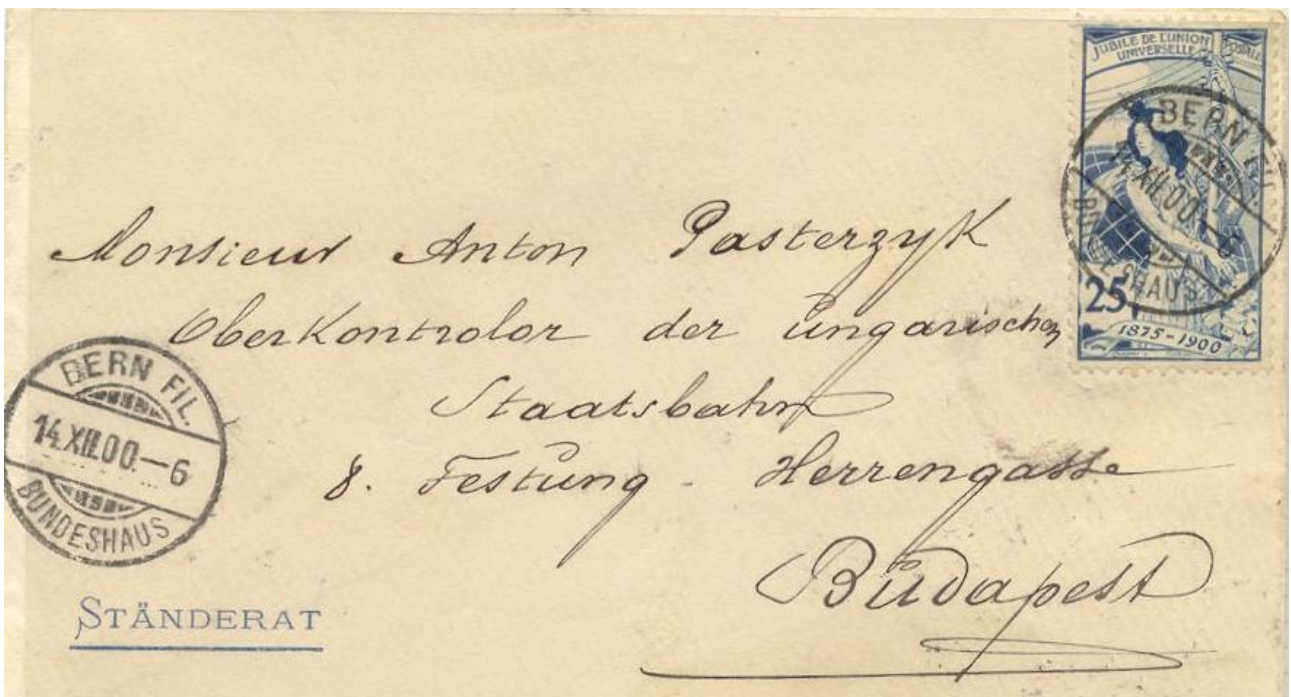 JUBILÉ DE L'UNION POSTALE
UNIVERSELLE
BERN FIL.
14.XII.00.-6
BUNDESHAUS
25
1875-1900
Monsieur Anton Pasterzyk
Oberkontrolor der ungarischen
Staatsbahn
8. Festung - Herrengasse
Budapest
BERN FIL.
14.XII.00.-6
BUNDESHAUS
STÄNDERAT